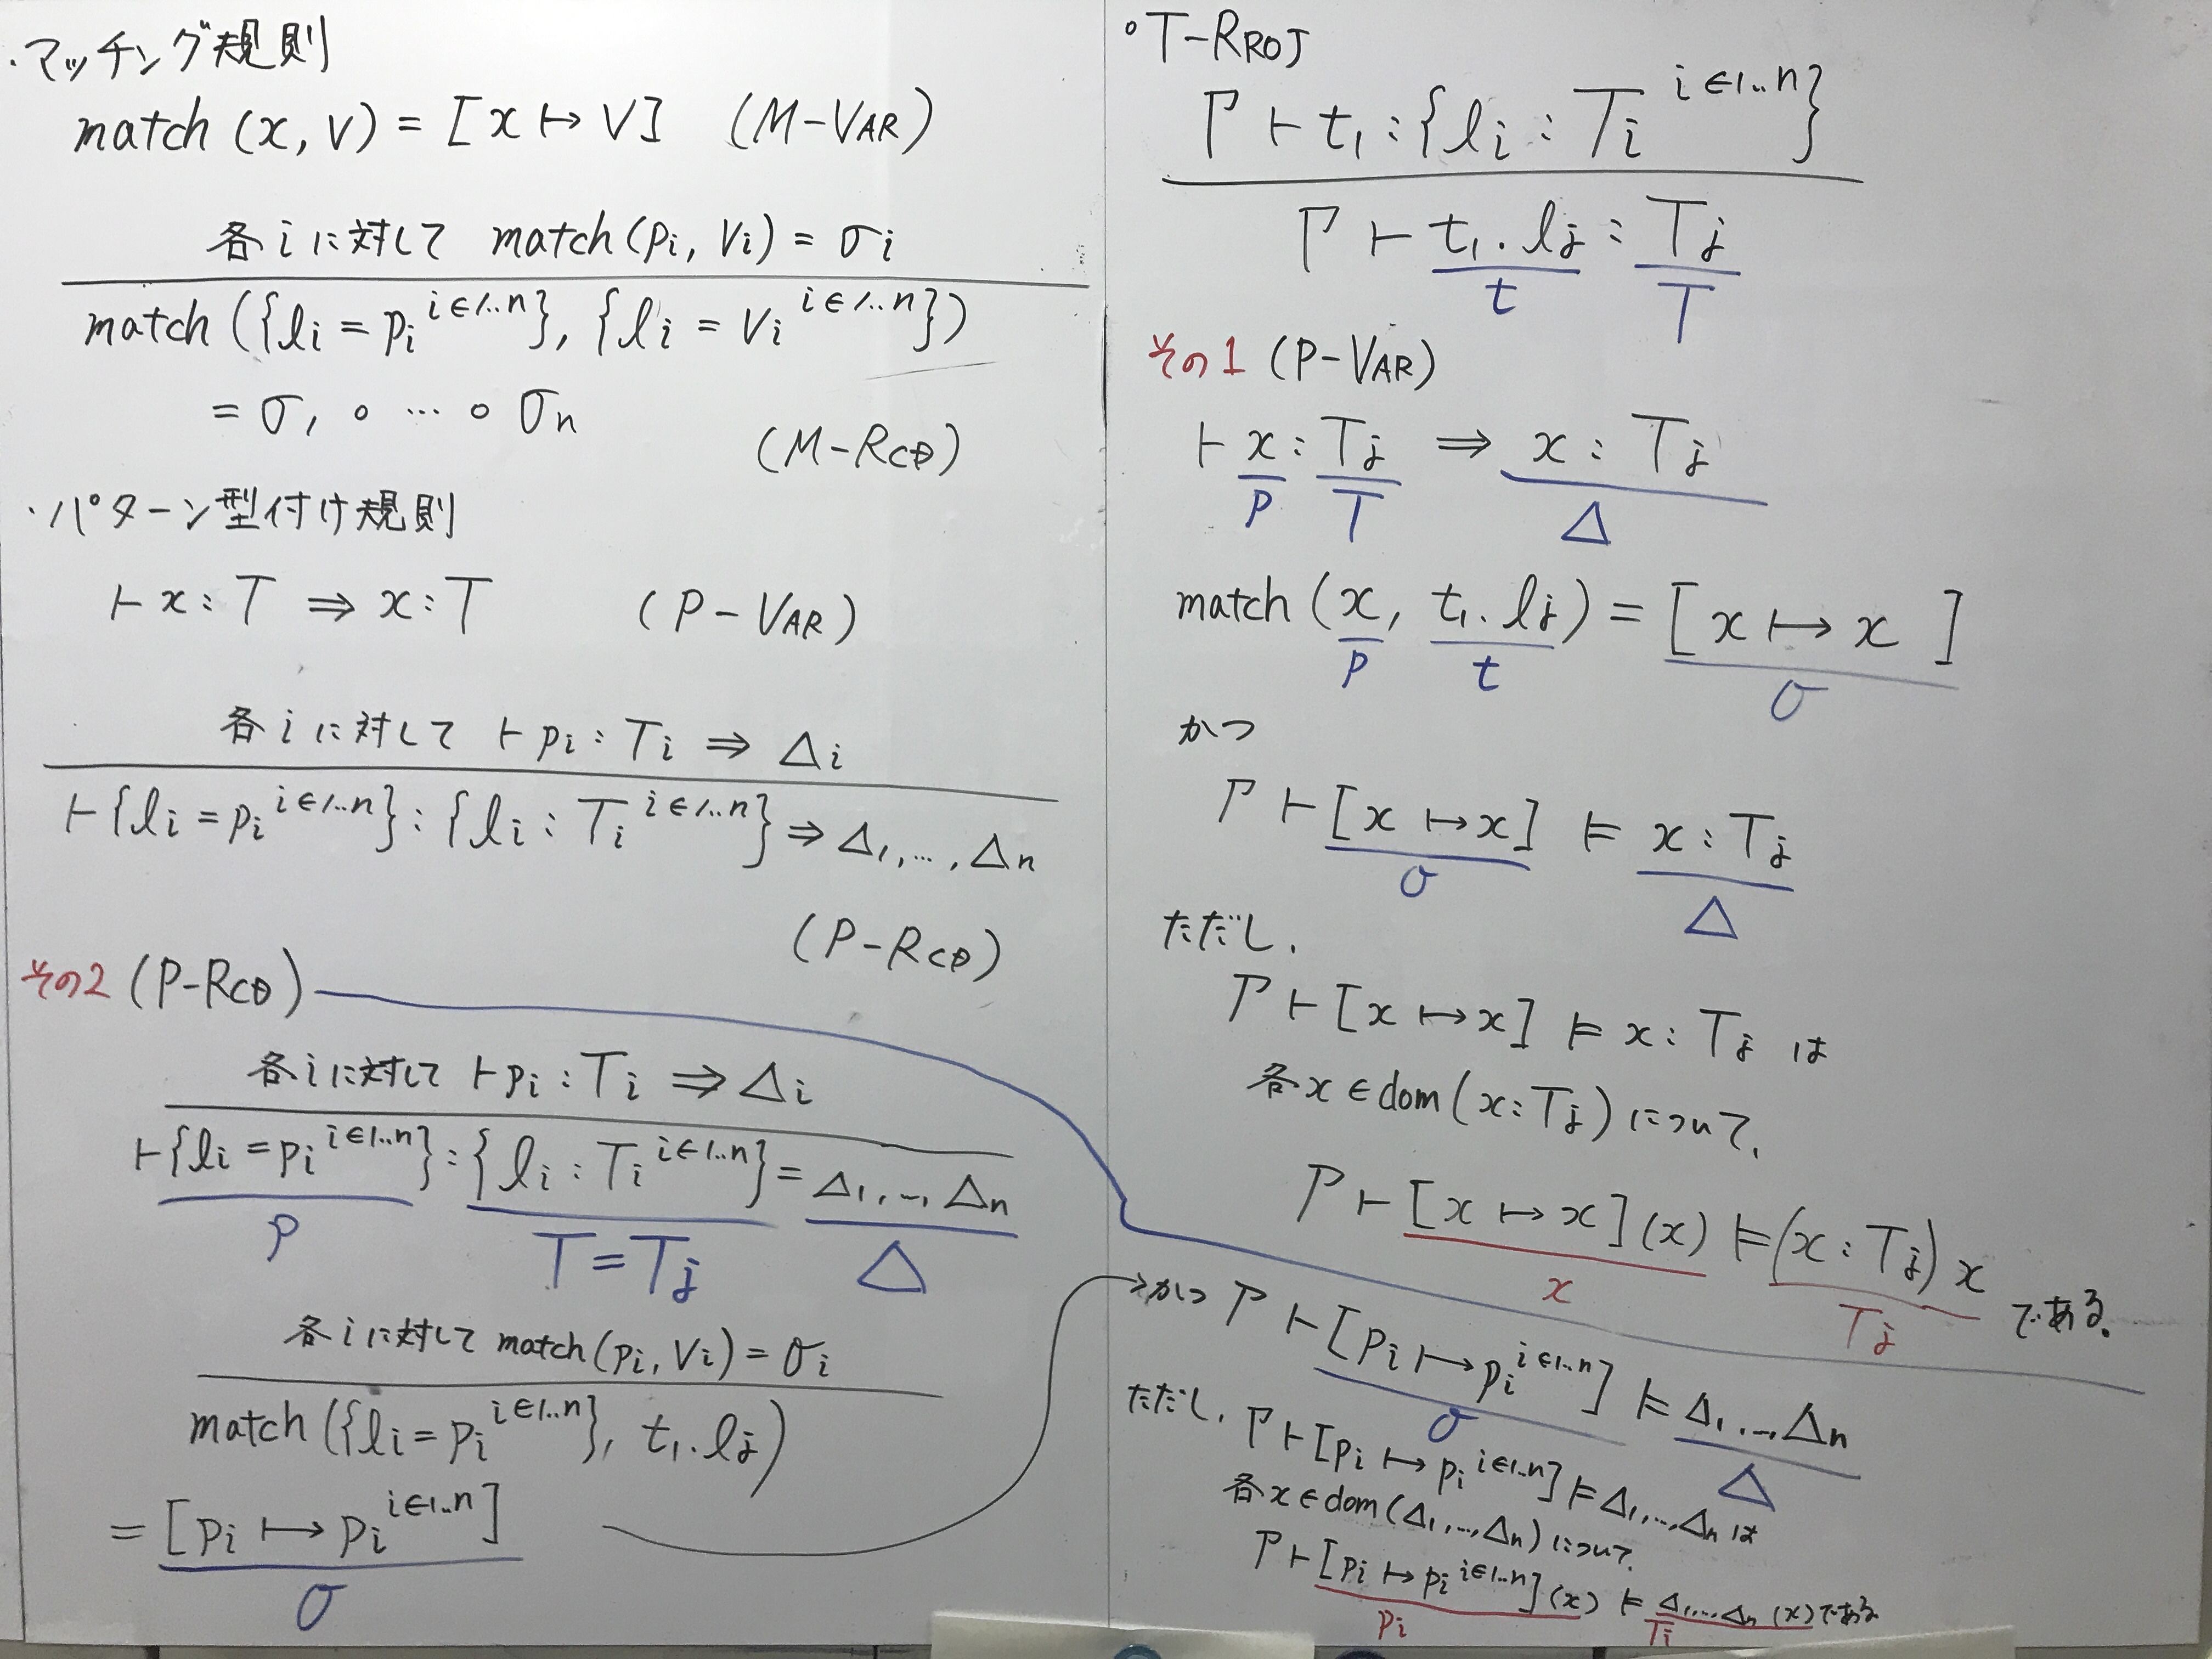 ・マッチング規則
match (x, v) = [x ↦ v] (M-VAR)
各iに対して match(pi, vi) = σi
match ({li = pi^i∈1..n}, {li = vi^i∈1..n})
= σ1 ∘ … ∘ σn
(M-RCD)
・パターン型付け規則
⊢ x : T ⇒ x : T (P-VAR)
各iに対して ⊢ pi : Ti ⇒ Δi
⊢{li = pi^i∈1..n} : {li : Ti^i∈1..n} ⇒ Δ1, …, Δn
(P-RCD)
その2 (P-RCD)
各iに対して ⊢ pi : Ti ⇒ Δi
⊢{li = pi^i∈1..n} : {li : Ti^i∈1..n} = Δ1, …, Δn
p T = Tj Δ
各iに対して match(pi, vi) = σi
match ({li = pi^i∈1..n}, t1.lj)
= [pi ↦ pi^i∈1..n]
σ
∘T-RROJ
Γ ⊢ t1 : {li : Ti^i∈1..n}
Γ ⊢ t1.lj : Tj
t T
その1 (P-VAR)
⊢ x : Tj ⇒ x : Tj
p T Δ
match (x, t1.lj) = [x ↦ x]
p t σ
かつ
Γ ⊢ [x ↦ x] ⊨ x : Tj
σ Δ
ただし、
Γ ⊢ [x ↦ x] ⊨ x : Tj は
各x ∈ dom(x : Tj) について、
Γ ⊢ [x ↦ x](x) ⊨ (x : Tj) x である。
x Tj
かつ Γ ⊢ [pi ↦ pi^i∈1..n] ⊨ Δ1, …, Δn
σ Δ
ただし、Γ ⊢ [pi ↦ pi^i∈1..n] ⊨ Δ1, …, Δn は
各x ∈ dom(Δ1, …, Δn) について、
Γ ⊢ [pi ↦ pi^i∈1..n](x) ⊨ Δ1, …, Δn (x) である
pi Ti